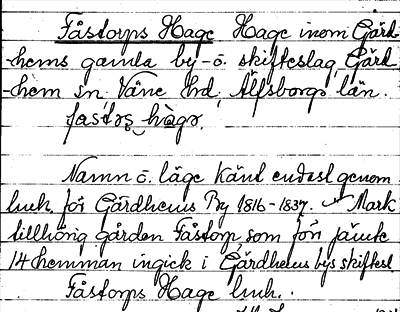 Fåstorps Hage Hage inom Gärd-
-hems gamla by- o. skifteslag, Gärd
-hem sn, Väne hrd, Älfsborgs län.
fastɔs hagə.
Namn o. läge känt endast genom
lmk. för Gärdhems By 1816-1837. Mark
tillhörig gården Fåstorp, som förr jämte
14 hemman ingick i Gärdhems bys skiftesl
Fåstorps Hage lmk.